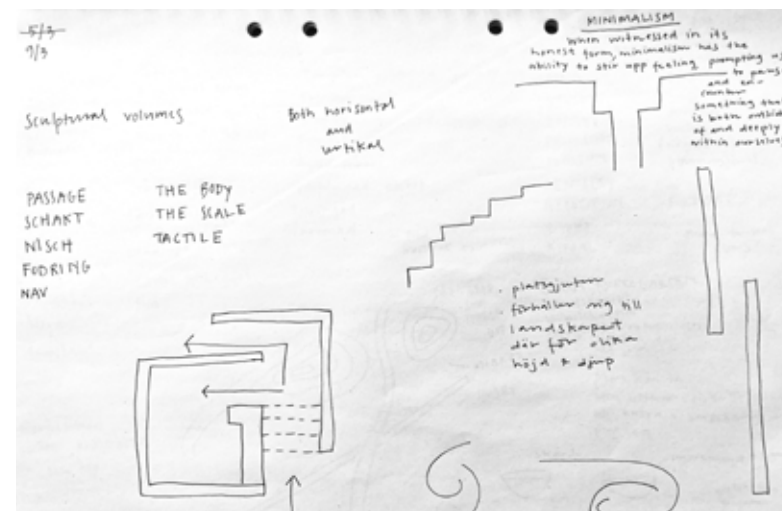 5/3
9/3
MINIMALISM
When witnessed in its
honest form, minimalism has the
ability to stir upp feeling prompting us
to pause
and en-
counter
something that
is both outside
of and deeply
within ourselves
Sculptural volumes
Both horisontal
and
vertikal
PASSAGE
SCHAKT
NISCH
FODRING
NAV
THE BODY
THE SCALE
TACTILE
. platsgjuten
. förhåller sig till
landskapet
där för olika
höjd & djup